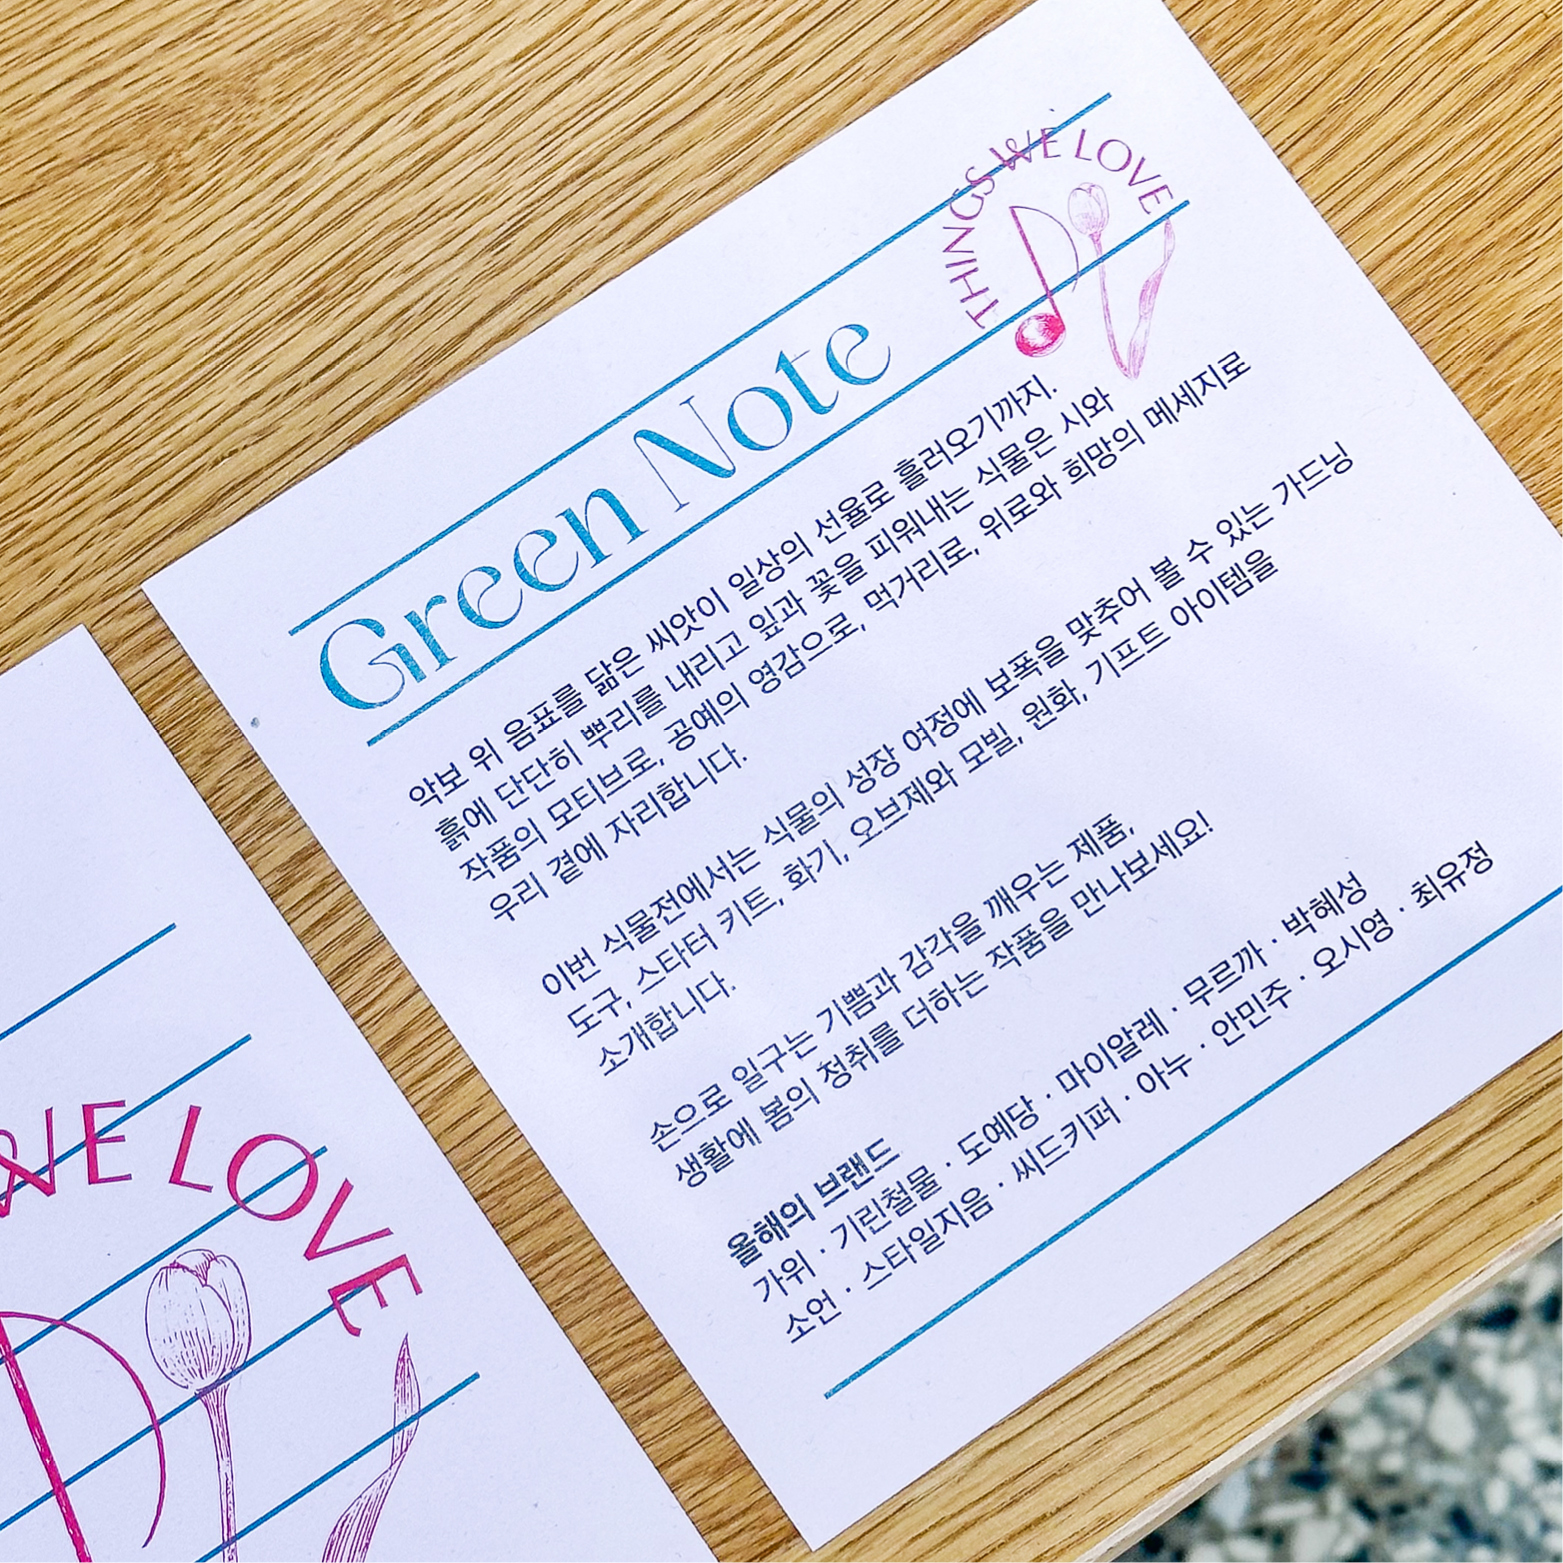 THINGS WE LOVE
Green Note
악보 위 음표를 닮은 씨앗이 일상의 선율로 흘러오기까지.
흙에 단단히 뿌리를 내리고 잎과 꽃을 피워내는 식물은 시와
작품의 모티브로, 공예의 영감으로, 먹거리로, 위로와 희망의 메세지로
우리 곁에 자리합니다.
이번 식물전에서는 식물의 성장 여정에 보폭을 맞추어 볼 수 있는 가드닝
도구, 스타터 키트, 화기, 오브제와 모빌, 원화, 기프트 아이템을
소개합니다.
손으로 일구는 기쁨과 감각을 깨우는 제품,
생활에 봄의 정취를 더하는 작품을 만나보세요!
올해의 브랜드
가위 · 기린철물 · 도예당 · 마이알레 · 무르까 · 박혜성
소언 · 스타일지음 · 씨드키퍼 · 아누 · 안민주 · 오시영 · 최유정
WE LOVE